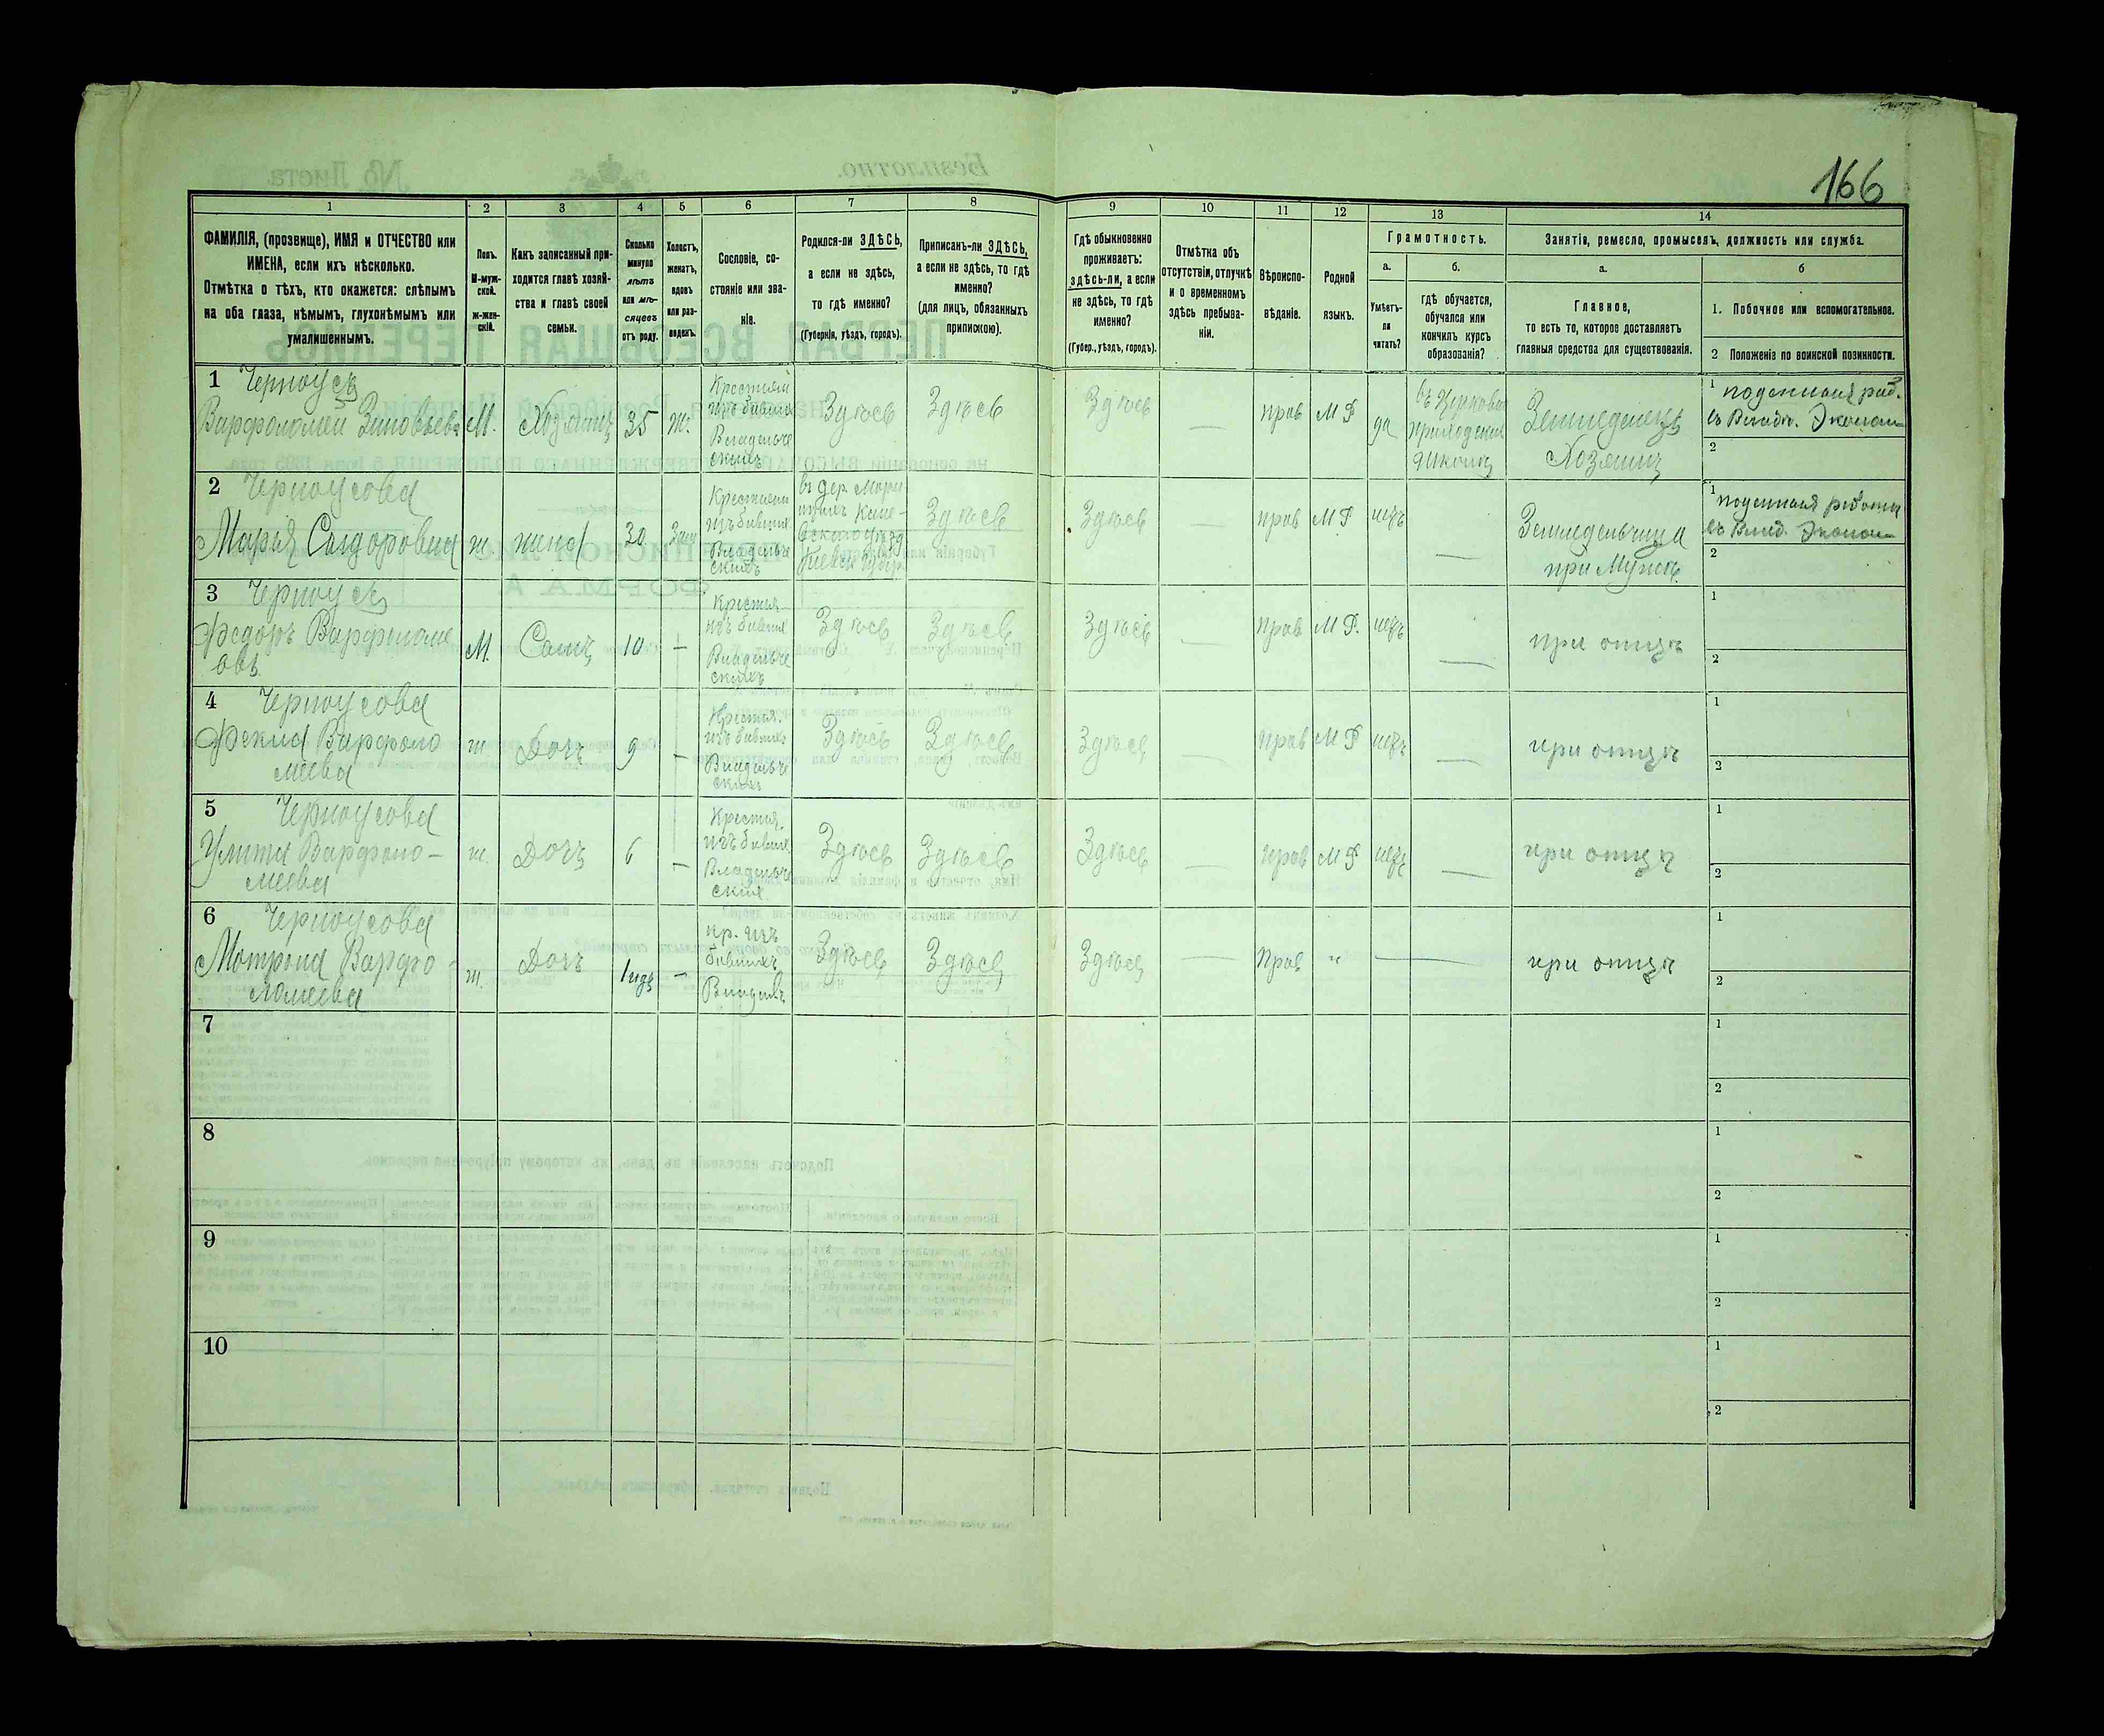 166
1 2 3 4 5 6 7 8 9 10 11 12 13 14
ФАМИЛІЯ, (прозвище), ИМЯ и ОТЧЕСТВО или
ИМЕНА, если ихъ нѣсколько.
Отмѣтка о тѣхъ, кто окажется: слѣпымъ
на оба глаза, нѣмымъ, глухонѣмымъ или
умалишеннымъ.
Полъ.
М-муж-
ской.
ж-жен-
скій.
Какъ записанный при-
ходится главѣ хозяй-
ства и главѣ своей
семьи.
Сколько
минуло
лѣтъ
или мѣ-
сяцевъ
отъ роду.
Холостъ,
женатъ,
вдовъ
или раз-
веденъ.
Сословіе, со-
стояніе или зва-
ніе.
Родился-ли ЗДѢСЬ,
а если не здѣсь,
то гдѣ именно?
(Губернія, уѣздъ, городъ).
Приписанъ-ли ЗДѢСЬ,
а если не здѣсь, то гдѣ
именно?
(для лицъ, обязанныхъ
припискою).
Гдѣ обыкновенно
проживаетъ:
здѣсь-ли, а если
не здѣсь, то гдѣ
именно?
(Губер., уѣздъ, городъ).
Отмѣтка объ
отсутствіи, отлучкѣ
и о временномъ
здѣсь пребыва-
ніи.
Вѣроиспо-
вѣданіе.
Родной
языкъ.
Грамотность.
а.
Умѣетъ-
ли
читать?
б.
гдѣ обучается,
обучался или
кончилъ курсъ
образованія?
Занятіе, ремесло, промыселъ, должность или служба.
а.
Главное,
то есть то, которое доставляетъ
главныя средства для существованія.
б
1. Побочное или вспомогательное.
2 Положеніе по воинской повинности.
1 Черноусъ
Варфоломей Зиновьевъ
М.
Хозяинъ
35
ж.
Крестьян
изъ бывших
Владельче
скихъ
Здѣсь
Здѣсь
Здѣсь
—
прав
М Р
да
въ Церковно
приходской
Школѣ
Земледелецъ
Хозяинъ
1 поденная раб.
въ Владѣл. Эконом
2
2 Черноусова
Мария Сидоровна
ж
жена
30
Зам
Крестьян
изъ бывших
Владельче
скихъ
въ дер.
Киевск Губер.
Здѣсь
Здѣсь
—
прав
М Р
нетъ
—
Земледельчица
при Мужѣ
1 поденная работа
въ Влад. Эконом
2
3 Черноусъ
Федоръ Варфоломе
овъ
М.
Сынъ
10
—
Крестья
изъ бывших
Владельче
скихъ
Здѣсь
Здѣсь
Здѣсь
—
прав
М Р.
нетъ
—
при отцѣ
1
2
4 Черноусова
Фекла Варфоло
меева
ж
Дочь
9
—
Крестья.
изъ бывших
Владельче
скихъ
Здѣсь
Здѣсь
Здѣсь
—
прав
М Р
нетъ
—
при отцѣ
1
2
5 Черноусова
Улита Варфоло-
меева
ж.
Дочь
6
—
Крестья.
изъ бывших.
Владельче
ских
Здѣсь
Здѣсь
Здѣсь
—
прав
М Р
нетъ
—
при отцѣ
1
2
6 Черноусова
Мотрона Варфо
ломеева
ж.
Дочь
1 годъ
—
кр. изъ
бывшихъ
Здѣсь
Здѣсь
Здѣсь
—
прав
"
—
при отцѣ
1
2
7
1
2
8
1
2
9
1
2
10
1
2